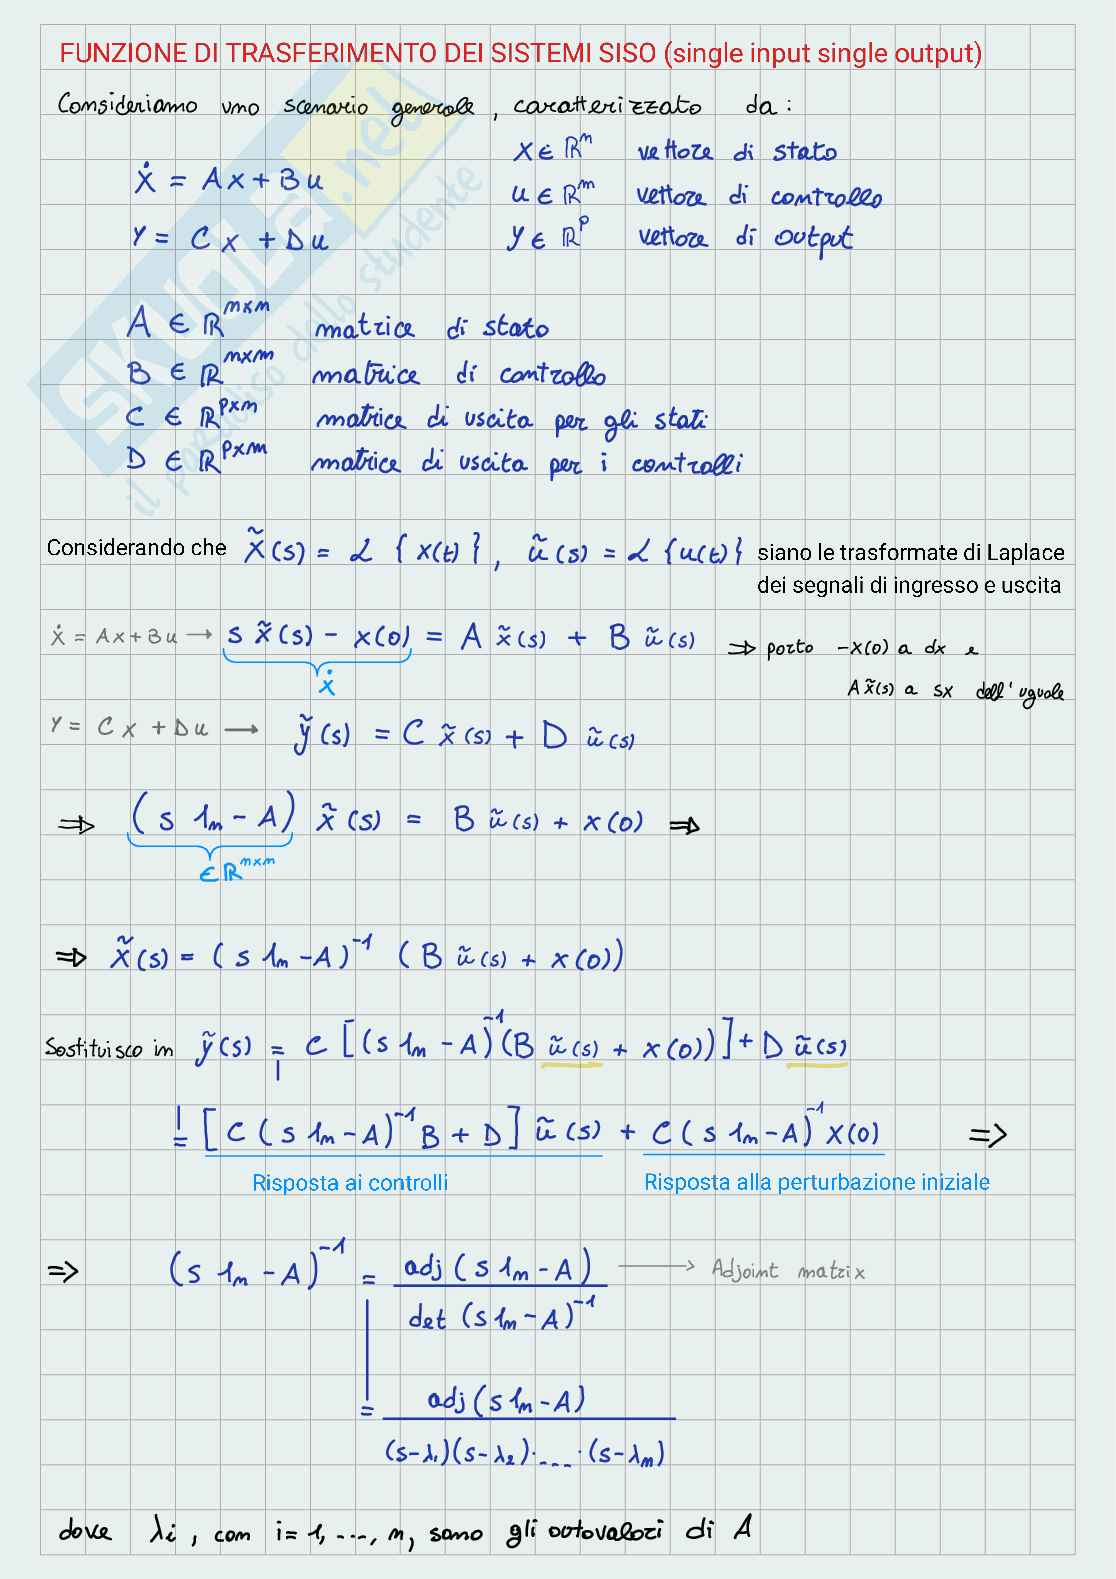 FUNZIONE DI TRASFERIMENTO DEI SISTEMI SISO (single input single output)
Consideriamo uno scenario generale, caratterizzato da:
ẋ = Ax + Bu
y = Cx + Du
x ∈ ℝⁿ vettore di stato
u ∈ ℝᵐ vettore di controllo
y ∈ ℝᵖ vettore di output
A ∈ ℝⁿˣⁿ matrice di stato
B ∈ ℝⁿˣᵐ matrice di controllo
C ∈ ℝᵖˣⁿ matrice di uscita per gli stati
D ∈ ℝᵖˣᵐ matrice di uscita per i controlli
Considerando che x̃(s) = ℒ {x(t)}, ũ(s) = ℒ {u(t)} siano le trasformate di Laplace
dei segnali di ingresso e uscita
ẋ = Ax + Bu → s x̃(s) - x(0) = A x̃(s) + B ũ(s) ⇒ porto -x(0) a dx e
ẋ
A x̃(s) a sx dell'uguale
y = Cx + Du → ỹ(s) = C x̃(s) + D ũ(s)
⇒ (s 1ₙ - A) x̃(s) = B ũ(s) + x(0) ⇒
∈ ℝⁿˣⁿ
⇒ x̃(s) = (s 1ₙ - A)⁻¹ (B ũ(s) + x(0))
Sostituisco in ỹ(s) = C [(s 1ₙ - A)⁻¹ (B ũ(s) + x(0))] + D ũ(s)
= [C (s 1ₙ - A)⁻¹ B + D] ũ(s) + C (s 1ₙ - A)⁻¹ x(0) ⇒
Risposta ai controlli Risposta alla perturbazione iniziale
⇒ (s 1ₙ - A)⁻¹ = adj (s 1ₙ - A) → Adjoint matrix
det (s 1ₙ - A)⁻¹
= adj (s 1ₙ - A)
(s-λ₁)(s-λ₂)·....·(s-λₙ)
dove λi, con i = 1, ..., n, sono gli autovalori di A
SKUOLA.net
il paradiso dello studente